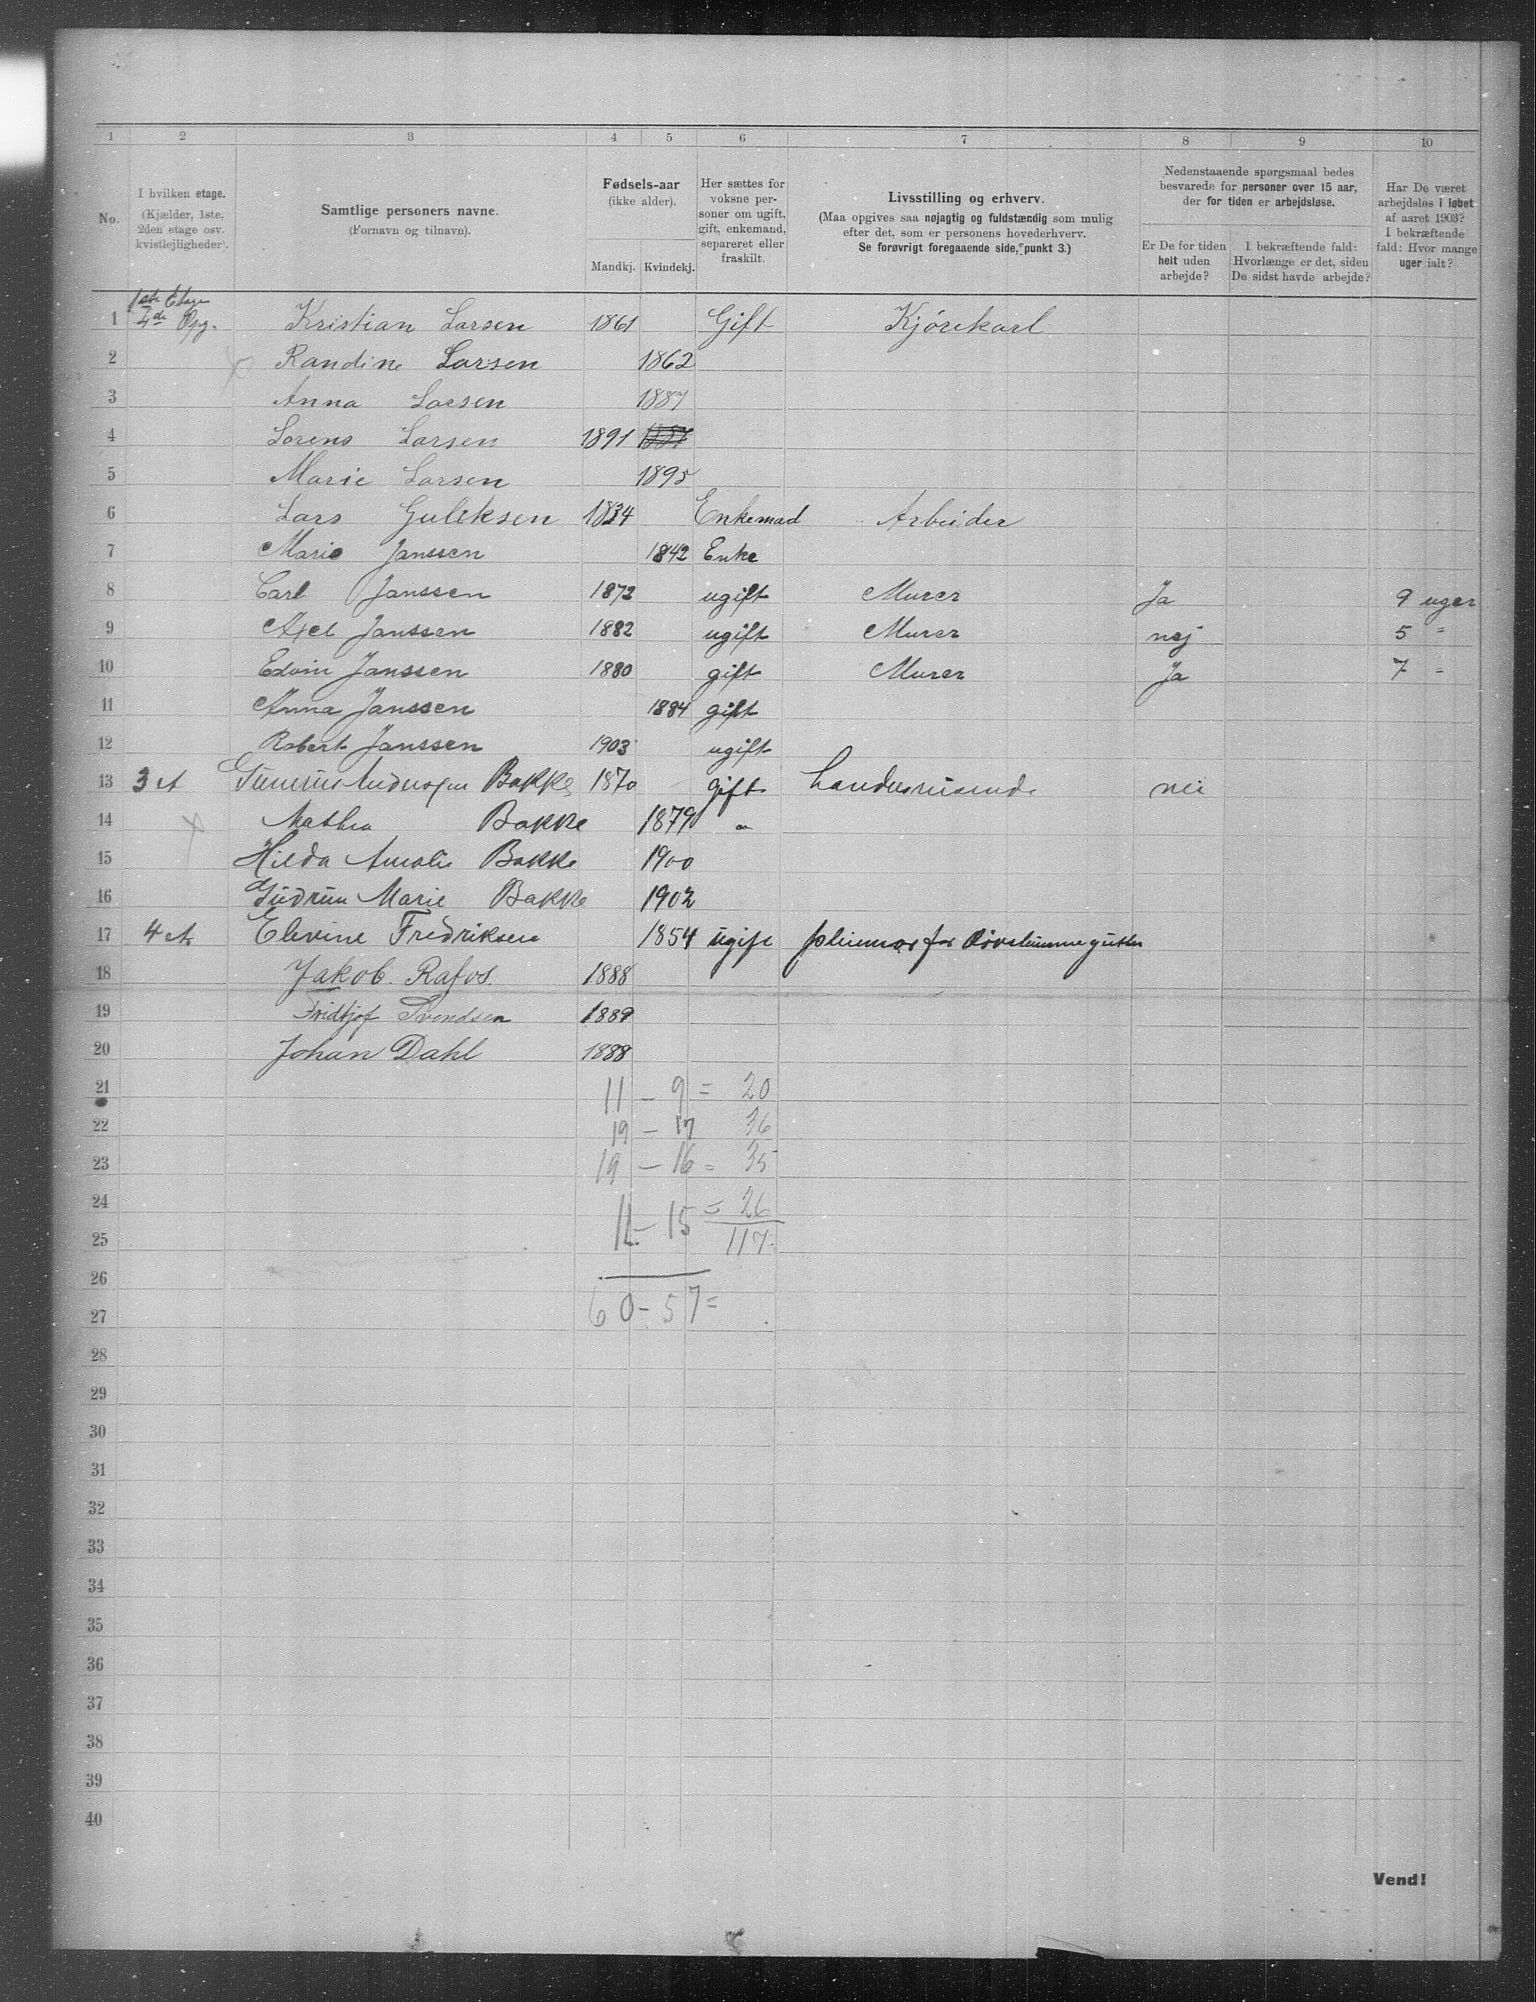 1 2 3 4 5 6 7 8 9 10
No.
I hvilken etage.
(Kjælder, 1ste,
2den etage osv.
kvistlejligheder).
Samtlige personers navne.
(Fornavn og tilnavn).
Fødsels-aar
(ikke alder).
Mandkj. Kvindekj.
Her sættes for
voksne per-
soner om ugift,
gift, enkemand,
separeret eller
fraskilt.
Livsstilling og erhverv.
(Maa opgives saa nøjagtig og fuldstændig som mulig
efter det, som er personens hovederhverv.
Se forøvrigt foregaaende side, punkt 3.)
Nedenstaaende spørgsmaal bedes
besvarede for personer over 15 aar,
der for tiden er arbejdsløse.
Er De for tiden
helt uden
arbejde?
I bekræftende fald:
Hvorlænge er det, siden
De sidst havde arbejde?
Har De været
arbejdsløs i løbet
af aaret 1903?
I bekræftende
fald: Hvor mange
uger ialt?
1ste Etage
1 Opg. Kristian Larsen 1861 Gift Kjørekarl
2 Randine Larsen 1862
3 Anna Larsen 1887
4 Lorens Larsen 1891 1887
5 Marie Larsen 1895
6 Lars Guliksen 1834 Enkemad Arbeider
7 Marie Janssen 1842 Enke
8 Carl Janssen 1872 ugift Murer Ja 9 uger
9 Axel Janssen 1882 ugift Murer nej 5 "
10 Edvin Janssen 1880 gift Murer Ja 7 "
11 Anna Janssen 1884 gift
12 Robert Janssen 1903 ugift
13 3 et Bakke 1870 gift Handelsreisende nei
14 Mathea Bakke 1879 "
15 Hilda Amalie Bakke 1900
16 Gudrun Marie Bakke 1902
17 4 et Elevine Fredriksen 1854 ugift for Døvstumme gutter
18 Jakob Rafos. 1888
19 Fridtjof Svendsen 1889
20 Johan Dahl 1888
21 11 - 9 = 20
22 19 - 17 36
23 19 - 16 = 35
24 11 - 15 = 26
25 117.
26
27 60 - 57 =
28
29
30
31
32
33
34
35
36
37
38
39
40
Vend!